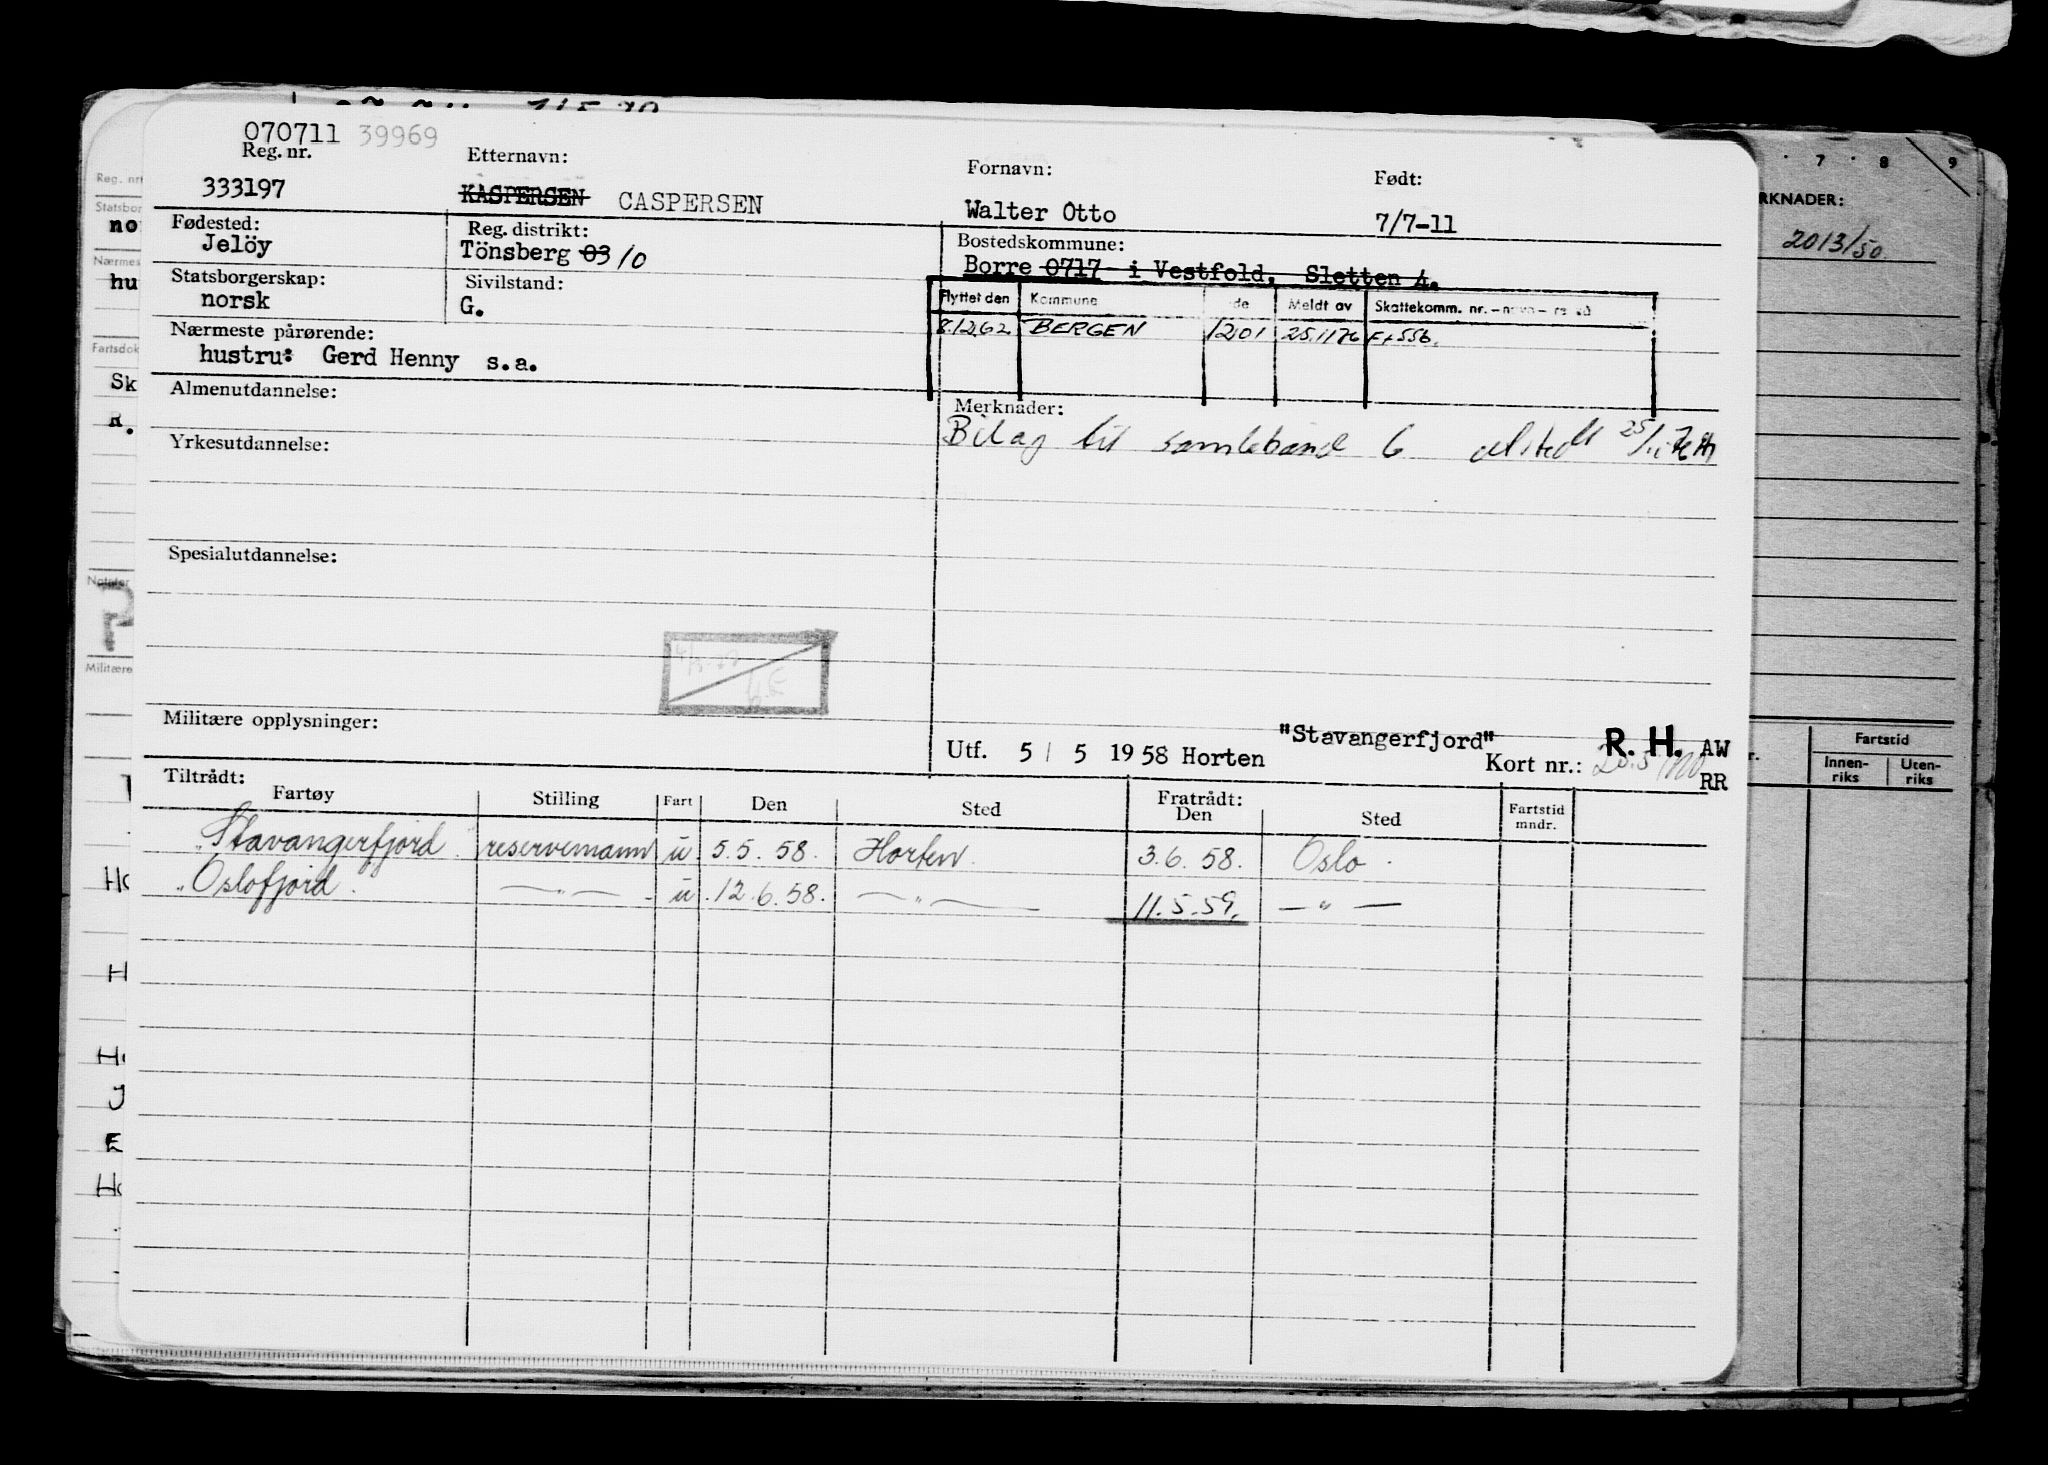 070711 39969
Reg. nr.
Etternavn:
Fornavn:
Født:
333197
KASPERSEN CASPERSEN
Walter Otto
7/7-11
Fødested:
Reg. distrikt:
Bostedskommune:
Jelöy
Tönsberg 03 10
Borre 0717 i Vestfold, Sletten 4.
Statsborgerskap:
Sivilstand:
norsk
G.
Flyttet den Kommune Meldt av Skattekomm. nr.
8.12.62 BERGEN 1201
Nærmeste pårørende:
hustru: Gerd Henny s.a.
Almenutdannelse:
Merknader:
Bilag til samlebånd 6
Yrkesutdannelse:
Spesialutdannelse:
Militære opplysninger:
"Stavangerfjord"
R. H. AW
Utf. 5 / 5 1958 Horten
Kort nr.:
RR
Tiltrådt:
Fratrådt:
Fartøy Stilling Fart Den Sted Den Sted Fartstid mndr.
"Stavangerfjord" reservemann u 5.5.58. Horten. 3.6.58. Oslo.
"Oslofjord. — " — u 12.6.58. — " — 11.5.59. — " —
Reg. nr
Statsbor
no
Nærmes
hu
Fartsdok
Sk
R.
Notater
?
Militære
Ho
H
H
J
E
Ho
7 8 9
RKNADER:
2013/50
Fartstid
r.
Innen-
riks
Uten-
riks